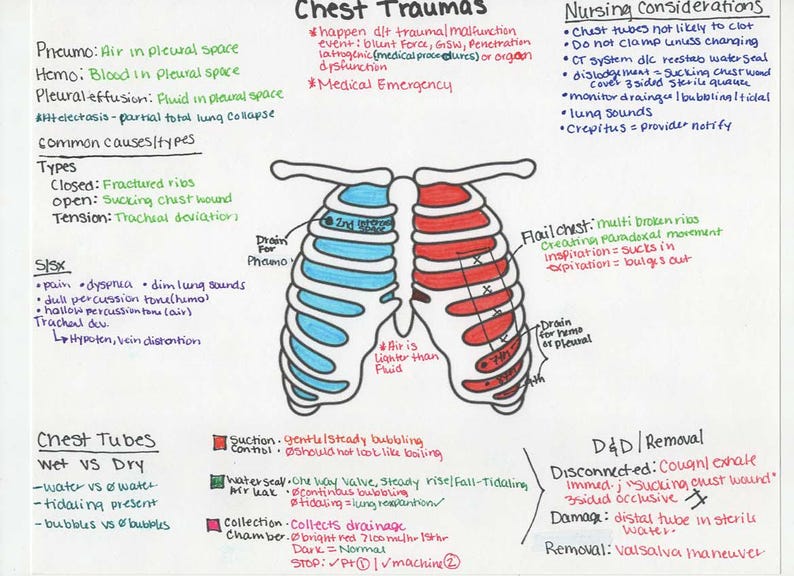 Chest Traumas
*happen d/t trauma/malfunction
event: blunt Force, GSW, Penetration
Iatrogenic (medical procedures) or organ
dysfunction
*Medical Emergency
Nursing Considerations
• Chest tubes not likely to clot
• Do not clamp unless changing
• CT system d/c reestab water seal
• dislodgement = sucking chest wound
cover 3 sided sterile guaze
• monitor drainage/bubbling/tidal
• lung sounds
• Crepitus = provider notify
Pneumo: Air in pleural space
Hemo: Blood in Pleural space
Pleural effusion: Fluid in pleural space
*Atelectasis - partial total lung collapse
Common causes/types
Types
Closed: Fractured ribs
Open: Sucking chest wound
Tension: Tracheal deviation
S/Sx
• pain • dyspnea • dim lung sounds
• dull percussion tone (hemo)
• hallow percussion tone (air)
Tracheal dev.
↳ Hypoten, vein distortion
2nd intercos
space
Drain
For
Pneumo
Flail chest: multi broken ribs
Creating paradoxal movement
Inspiration = sucks in
expiration = bulges out
x
x
x
x
Drain
for hemo
or pleural
7th
8th
9th
*Air is
lighter than
Fluid
Chest Tubes
Wet vs Dry
- water vs Ø water
- tidaling present
- bubbles vs Ø bubbles
Suction Control • gentle/steady bubbling
• Ø should not look like boiling
Water seal/ Air leak • One way valve, steady rise/Fall-Tidaling
• Ø continous bubbling
Ø tidaling = lung reexpantion ✓
Collection Chamber • Collects drainage
• Ø bright red >100ml/hr 1st hr
Dark = Normal
STOP: ✓Pt ① / ✓machine ②
D&D/Removal
Disconnected: Cough/exhale
Immed. j "sucking chest wound"
3 sided occlusive
Damage: distal tube in sterile
water.
Removal: Valsalva maneuver